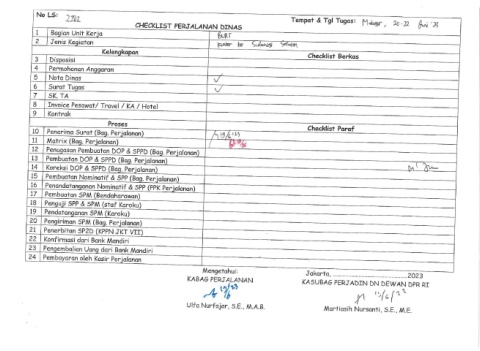 No LS:
CHECKLIST PERJALANAN DINAS
Tempat & Tgl Tugas: Makassar, 20-22 Juni '23
1 Bagian Unit Kerja BURT
2 Jenis Kegiatan kunker ke Sulawesi Selatan
Kelengkapan Checklist Berkas
3 Disposisi
4 Permohonan Anggaran
5 Nota Dinas ✓
6 Surat Tugas ✓
7 SK, TA
8 Invoice Pesawat/ Travel / KA / Hotel
9 Kontrak
Proses Checklist Paraf
10 Penerima Surat (Bag. Perjalanan)
11 Matrix (Bag. Perjalanan)
12 Penugasan Pembuatan DOP & SPPD (Bag. Perjalanan)
13 Pembuatan DOP & SPPD (Bag. Perjalanan)
14 Koreksi DOP & SPPD (Bag. Perjalanan)
15 Pembuatan Nominatif & SPP (Bag. Perjalanan)
16 Penandatanganan Nominatif & SPP (PPK Perjalanan)
17 Pembuatan SPM (Bendaharawan)
18 Penguji SPP & SPM (staf Karoku)
19 Pendatanganan SPM (Karoku)
20 Pengiriman SPM (Bag. Perjalanan)
21 Penerbitan SP2D (KPPN JKT VII)
22 Konfirmasi dari Bank Mandiri
23 Pengambalian Uang dari Bank Mandiri
24 Pembayaran oleh Kasir Perjalanan
Mengetahui:
KABAG PERJALANAN
Jakarta, 2023
KASUBAG PERJADIN DN DEWAN DPR RI
Ulfa Nurfajar, S.E., M.A.B.
Martiasih Nursanti, S.E., M.E.